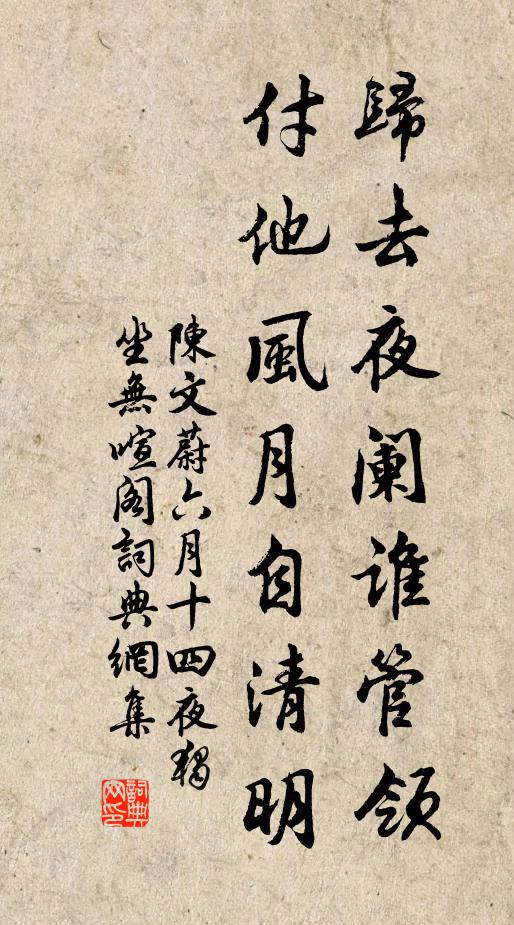 歸去夜阑谁管領
付他風月自清明
陳文蔚六月十四夜獨
坐無喧阁詞典網集
詞典网印